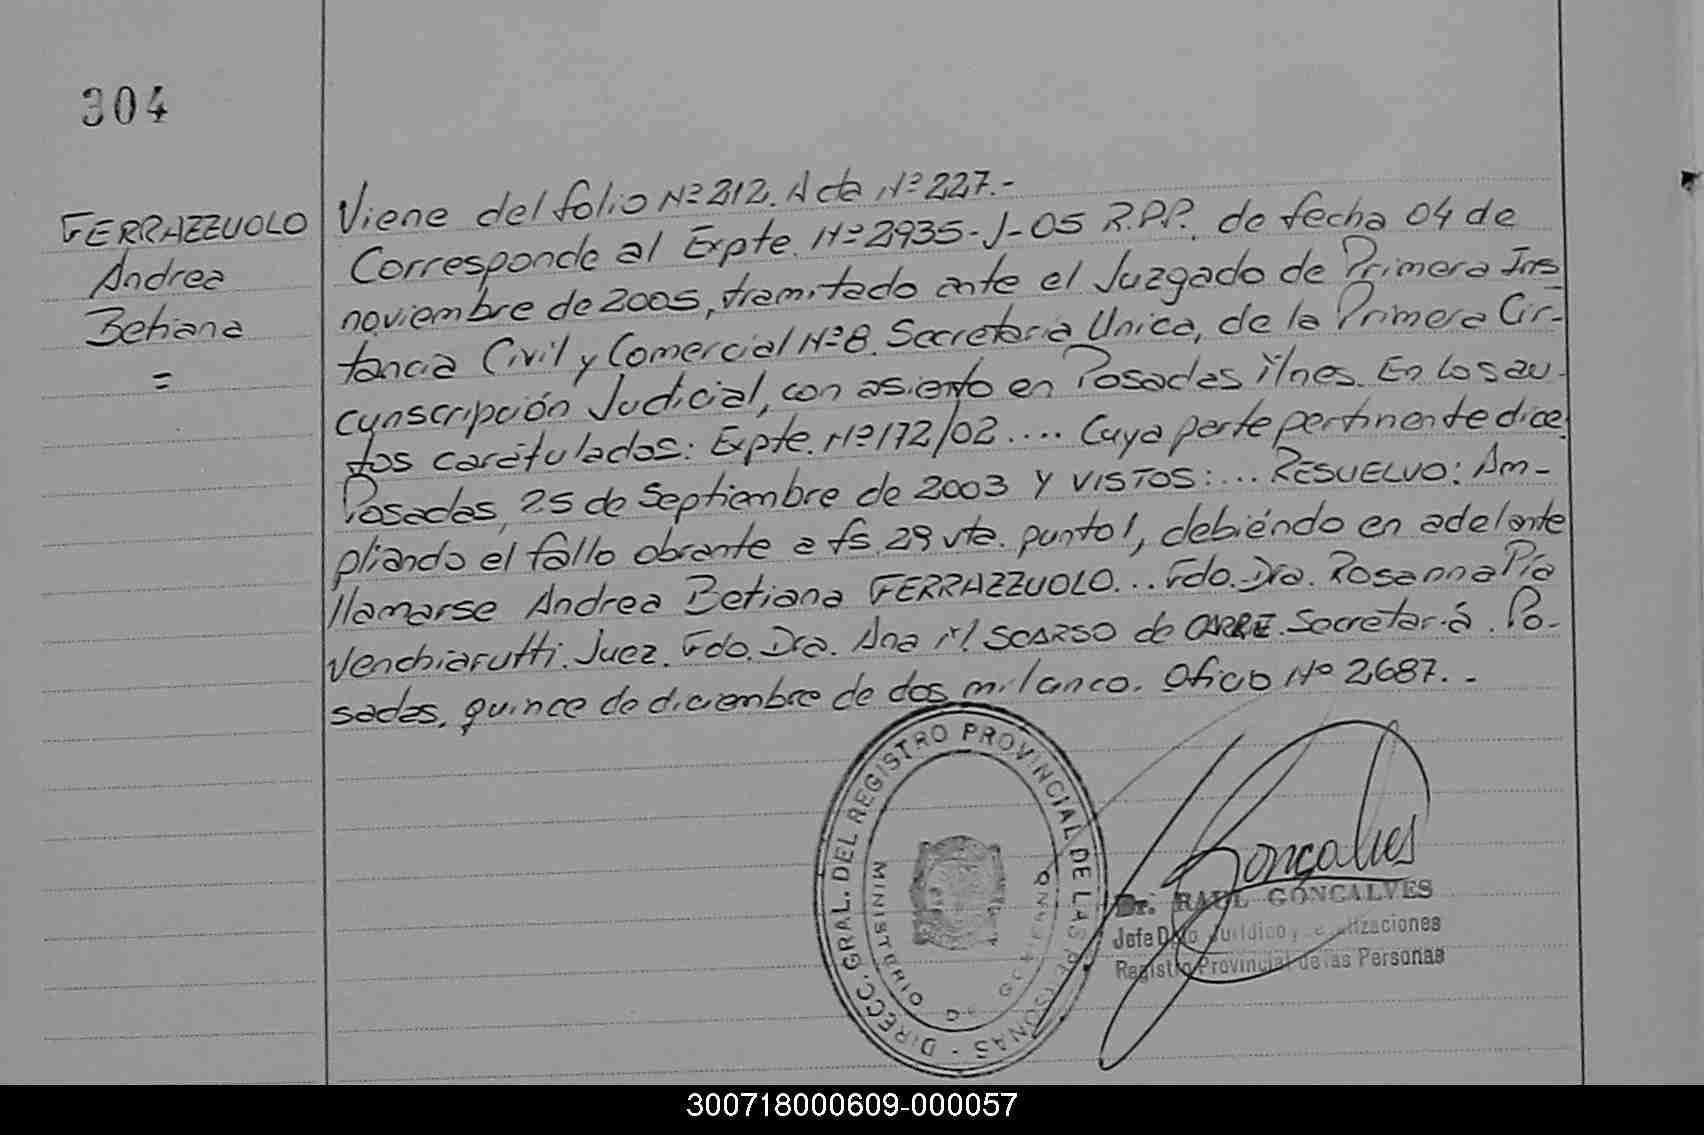 304
FERRAZZUOLO
Andrea
Betiana
=
Viene del folio Nº 212. Acta Nº 227.-
Corresponde al Expte. Nº 2935-J-05 R.P.P. de fecha 04 de
noviembre de 2005, tramitado ante el Juzgado de Primera Ins
tancia Civil y Comercial Nº 8. Secretaría Unica, de la Primera Cir-
cunscripción Judicial, con asiento en Posadas Mnes. En los au-
tos carátulados: Expte. Nº 172/02 .... Cuya parte pertinente dice:
Posadas, 25 de Septiembre de 2003 Y VISTOS: ... RESUELVO: Am-
pliando el fallo obrante a fs. 29 vta. punto 1, debiéndo en adelante
llamarse Andrea Betiana FERRAZZUOLO... Fdo. Dra. Rosanna Pía
Venchiarutti. Juez. Fdo. Dra. Ana M. SCARSO de ORRE. Secretaria. Po-
sadas, quince de diciembre de dos mil cinco. Oficio Nº 2687.-
DIRECC. GRAL. DEL REGISTRO PROVINCIAL DE LAS PERSONAS -
MINISTERIO DE GOBIERNO
Goncalves
Dr. RAUL GONCALVES
Jefe Dpto Jurídico y
Registro Provincial de las Personas
300718000609-000057